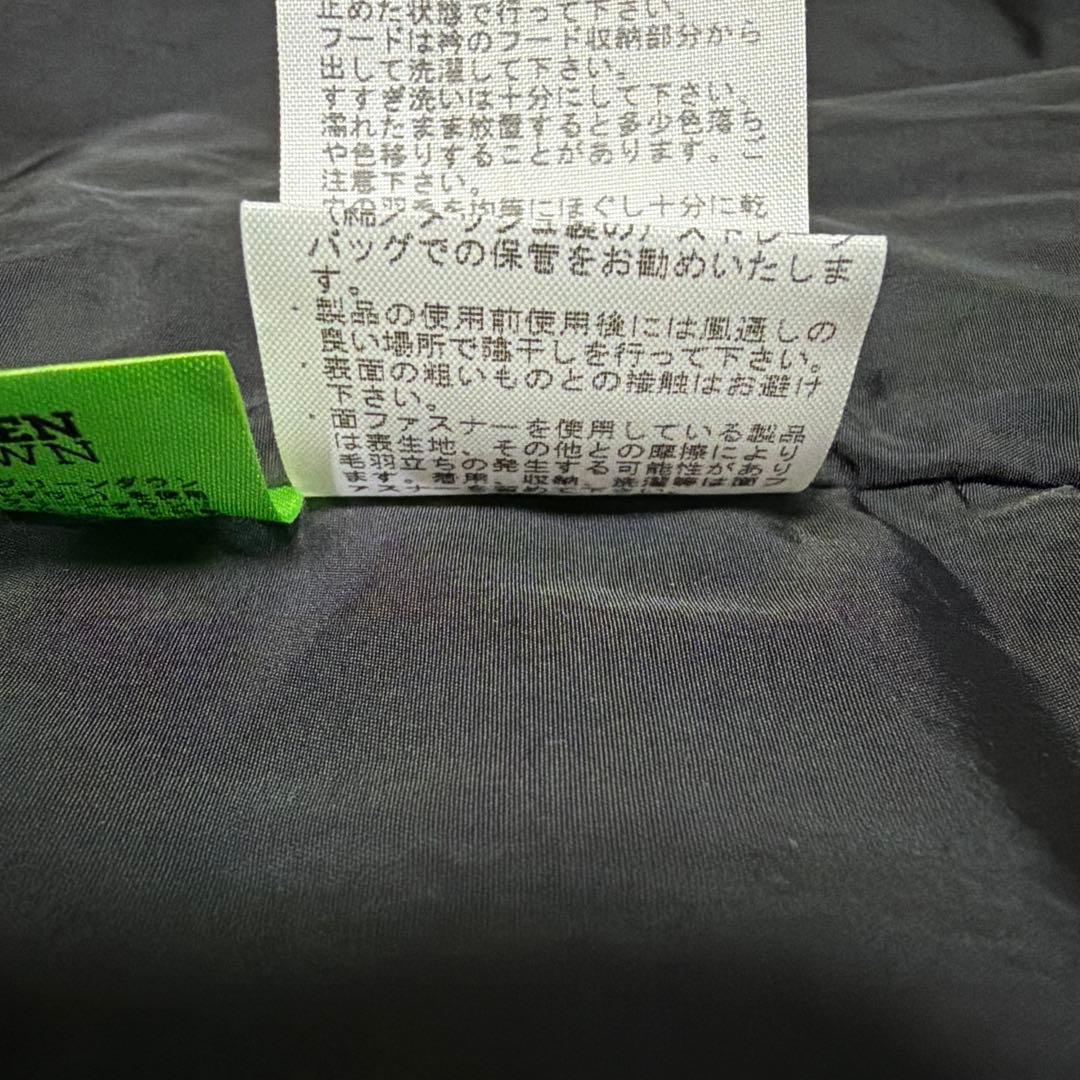 止めた状態で行って下さい。
フードは衿のフード収納部分から
出して洗濯して下さい。
すすぎ洗いは十分にして下さい。
濡れたまま放置すると多少色落ち
や色移りすることがあります。ご
注意下さい。
にほぐし十分に乾
バッグでの保管をお勧めいたしま
す。
・製品の使用前使用後には風通しの
良い場所で陰干しを行って下さい。
・表面の粗いものとの接触はお避け
下さい。
・面ファスナーを使用している製品
は表生地、その他との摩擦により
毛羽立ちの発生する可能性があり
ます。着用、収納、洗濯時は面フ
ァスナーを留めて下さい。
EN
グリーンダウン